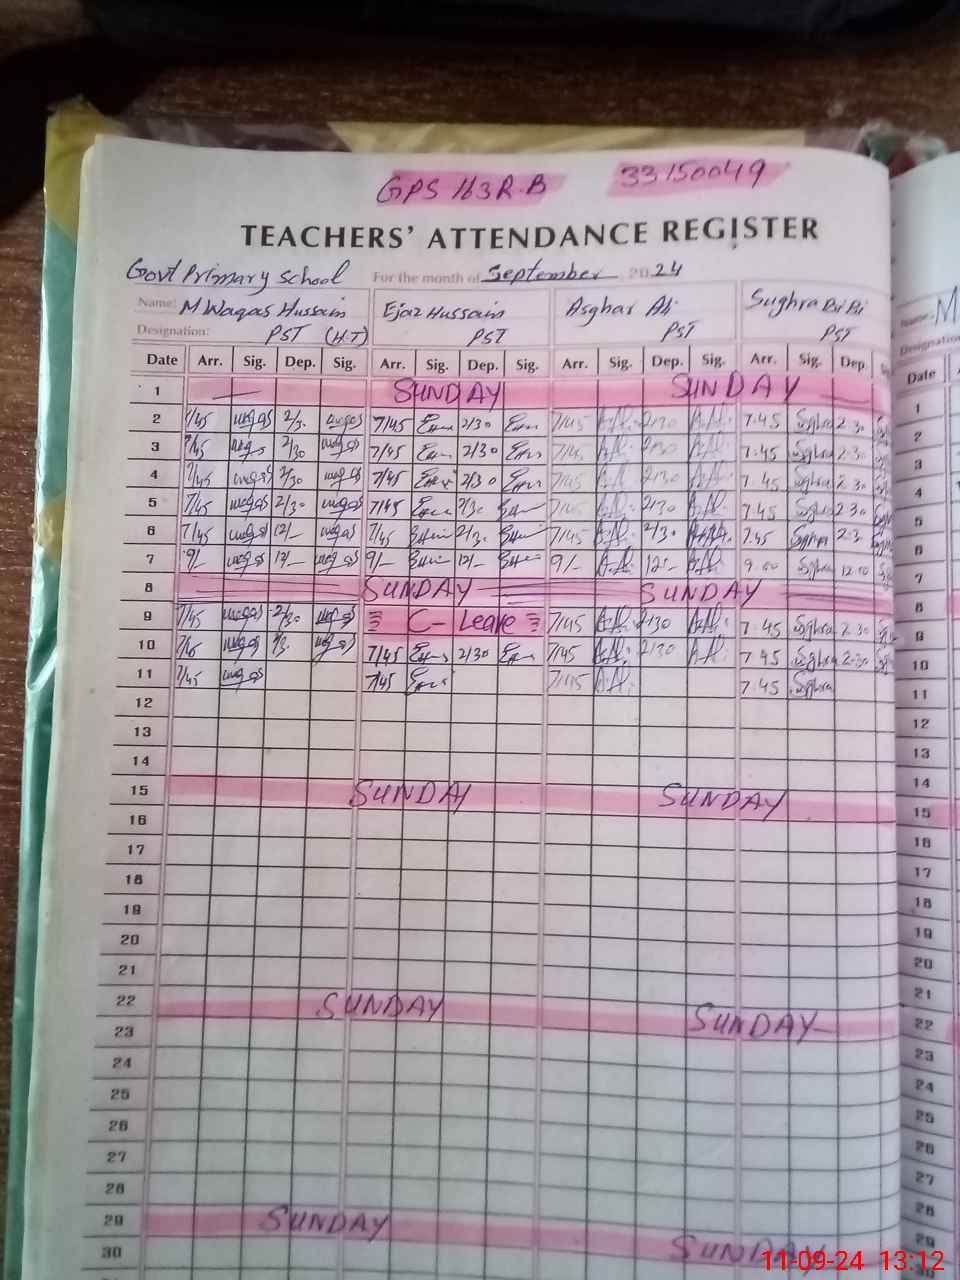 GPS 163 R.B 33150049
TEACHERS' ATTENDANCE REGISTER
Govt Primary School For the month of September 2024
Name: M Waqas Hussain Ejaz Hussain Asghar Ali Sughra Bi Bi
Designation: PST (H.T) PST PST PST
Date Arr. Sig. Dep. Sig. Arr. Sig. Dep. Sig. Arr. Sig. Dep. Sig. Arr. Sig. Dep.
1 SUNDAY SUNDAY
2 7/45 waqas 2/30 waqas 7/45 2/30 7/45 A.A. 2/30 A.A. 7.45 Sughra 2.30
3 7/45 waqas 2/30 waqas 7/45 2/30 7/45 A.A. 2/30 A.A. 7.45 Sughra 2.30
4 7/45 waqas 2/30 waqas 7/45 2/30 7/45 A.A. 2/30 A.A. 7.45 Sughra 2.30
5 7/45 waqas 2/30 waqas 7/45 2/30 7/45 A.A. 2/30 A.A. 7.45 Sughra 2.30
6 7/45 waqas 12/- waqas 7/45 2/30 7/45 A.A. 2/30 A.A. 7.45 Sughra 2.30
7 9/- waqas 12/- waqas 9/- 12/- 9/- A.A. 12/- A.A. 9.00 Sughra 12.00
8 SUNDAY SUNDAY
9 7/45 waqas 2/30 waqas C- Leave 7/45 A.A. 2/30 A.A. 7.45 Sughra 2.30
10 7/45 waqas 2/30 waqas 7/45 2/30 7/45 A.A. 2/30 A.A. 7.45 Sughra 2.30
11 7/45 waqas 7/45 7/45 A.A. 7.45 Sughra
12
13
14
15 SUNDAY SUNDAY
16
17
18
19
20
21
22 SUNDAY SUNDAY
23
24
25
26
27
28
29 SUNDAY SUNDAY
30
Name: M
Designation
Date
1
2
3
4
5
6
7
8
9
10
11
12
13
14
15
16
17
18
19
20
21
22
23
24
25
26
27
28
29
30
11-09-24 13:12